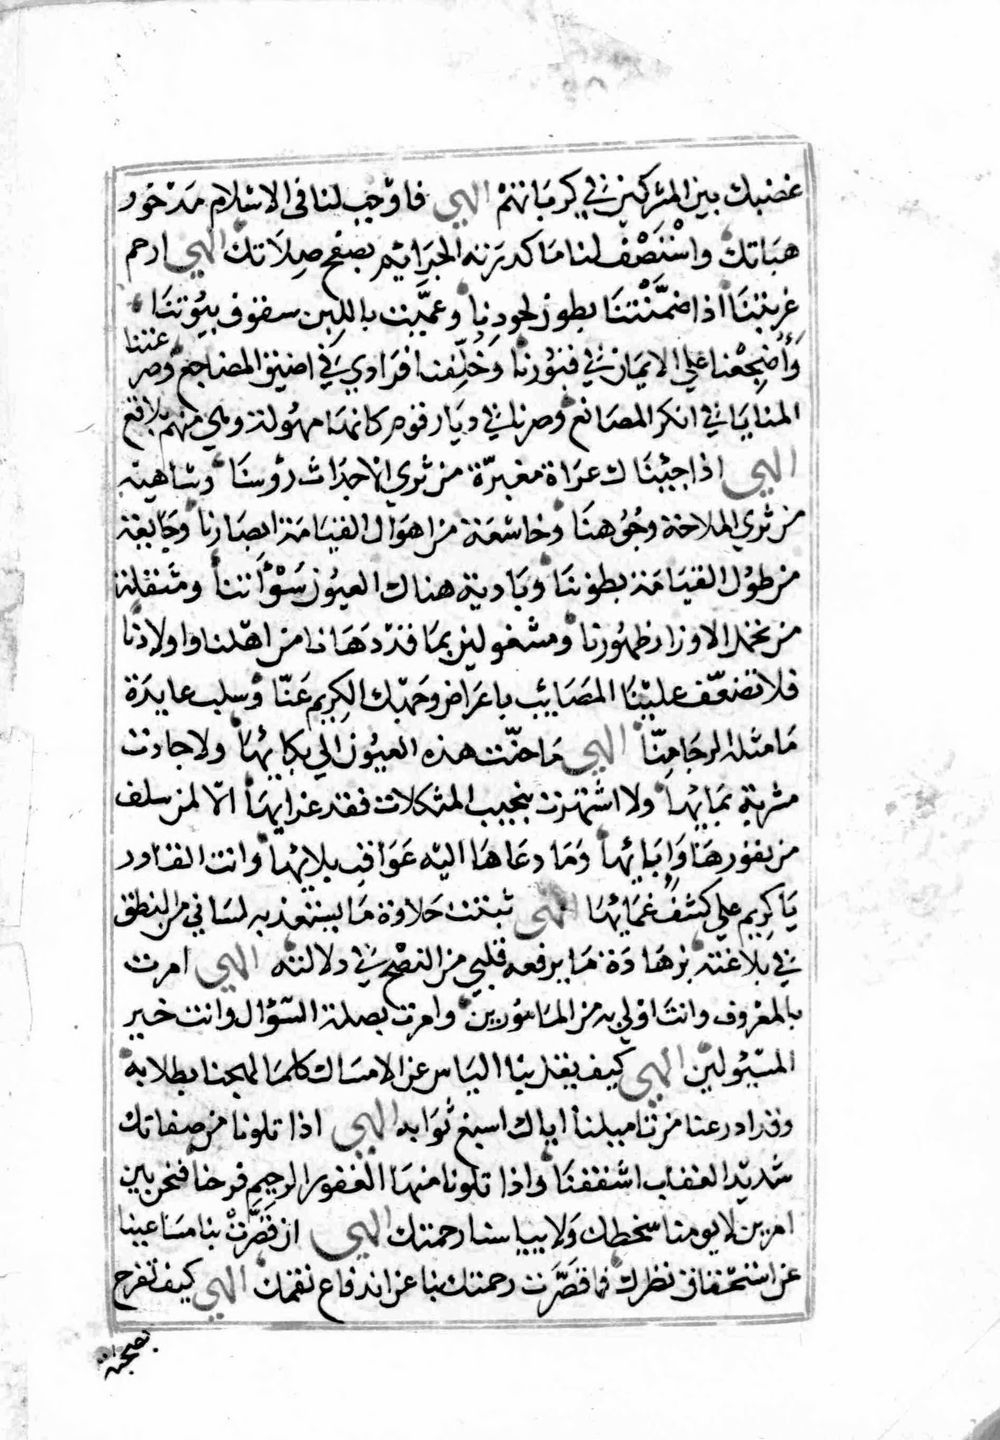 غضبك بين المشركين في كربانهم الهي فاوجب لنا في الاسلام مدخور
هباتك واستصف لنا ما كدرته الجرائم بصفح صلاتك الهي ارحم
غربتنا اذا ضمّنتنا بطون لحودنا وعميّت باللبن سقوف بيوتنا
وأضجعنا على الايمان في قبورنا وخلّفنا فرادي في اضيق المضاجع وصرعتنا
المنايا في انكر المصانع وصرنا في ديار قوم كانها مهولة وهي منهم بلاقع
الهي اذا جيناك عراة مغبرّة من ثري الاجداث رؤسنا وشاهبة
من ثري الملاحة وجوهنا وخاشعة من اهوال القيامة ابصارنا وجايعة
من طول القيامة بطوننا وبادية هناك العيون سؤاتنا ومثقلة
من تحمل الاوزار ظهورنا ومشغولين بما قد دهانا من اهلنا واولادنا
فلا تضعّف علينا المصايب باعراض وجهك الكريم عنّا وسلب عايدة
ما مثله الرجا منّا الهي ما حنّت هذه العيون الي بكائها ولا جادت
مشربة بمائها ولا اشتهرت بنجيب المثكلات فقد عزايها الا لما سلف
من نفورها وابائها وما دعاها اليه عواقب بلائها وانت القادر
يا كريم علي كشف غمائها الهي ثبتت حلاوة ما يستعذبه لساني من النطق
في بلاغته بزهادة ما يرفعه قلبي من النصح في دلالته الهي امرت
بالمعروف وانت اولي به من المامورين وامرت بصلة السّؤال وانت خير
المسئولين الهي كيف يقل بنا الياس عن الامساك كلما لهجنا بطلابه
وقد ادرعنا من تاميلنا اياك اسبغ ثوابه الهي اذا تلونا من صفاتك
شديد العقاب اشفقنا واذا تلونا منها الغفور الرحيم فرحنا فنحن بين
امرين لا يومنا سخطك ولا يياسنا رحمتك الهي ان قصّرت بنا مساعينا
عن استحقاق نظرك فما قصّرت رحمتك بنا عن اندفاع نقمتك الهي كيف تفرح
بصحبة